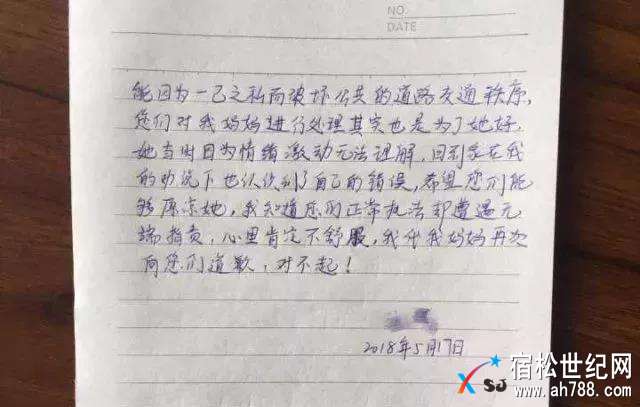 NO.
DATE
能因为一己之私而破坏公共的道路交通秩序,
您们对我妈妈进行处理其实也是为了她好,
她当时因为情绪激动无法理解,回到家在我
的劝说下也认识到了自己的错误,希望您们能
够原谅她,我知道您的正常执法却遭遇无
端指责,心里肯定不舒服,我代我妈妈再次
向您们道歉,对不起!
2018年5月17日
XSJ
宿松世纪网
www.ah788.com